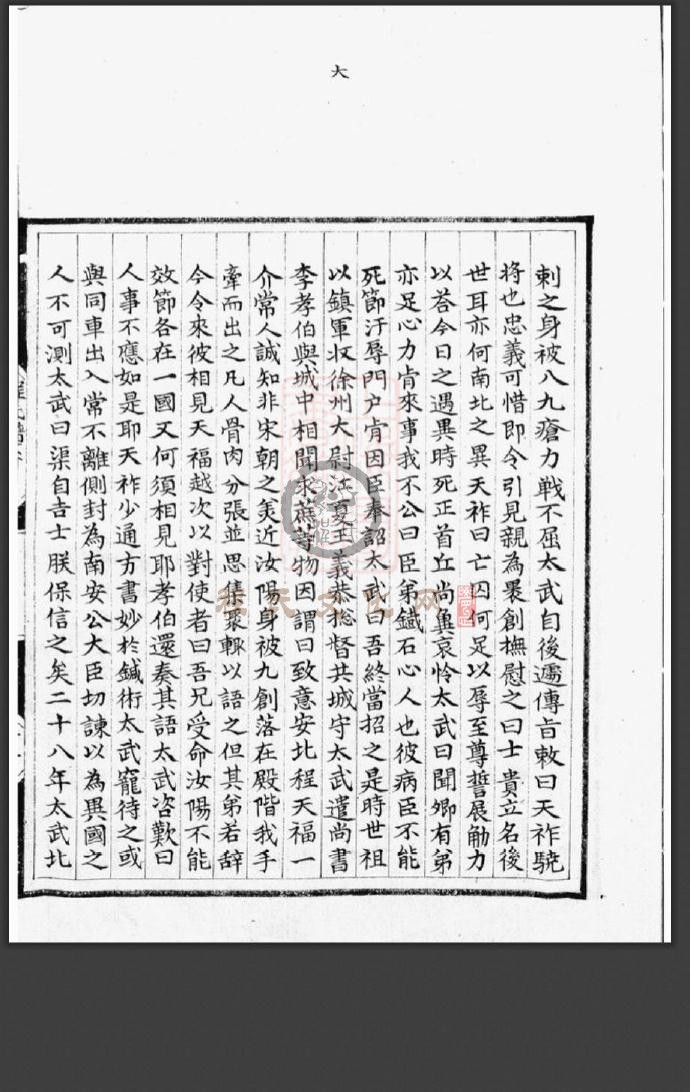 大
刺之身被八九瘡力戰不屈太武自後遥傳旨敕曰天祚驍
将也忠義可惜即令引見親為褁創撫慰之曰士貴立名後
世耳亦何南北之異天祚曰亡囚何足以辱至尊誓展觔力
以荅今日之遇異時死正首丘尚兾哀怜太武曰聞卿有弟
亦足心力肯來事我不公曰臣弟鐵石心人也彼病臣不能
死節汙辱門户肯因臣奉詔太武曰吾終當招之是時世祖
以鎮軍収徐州大尉江夏王義恭捴督共城守太武遣尚書
李孝伯與城中相聞求蔗等物因謂曰致意安北程天福一
介常人誠知非宋朝之羙近汝陽身被九創落在殿階我手
牽而出之凡人骨肉分張並思集聚輒以語之但其弟若辞
今令來彼相見天福越次以對使者曰吾兄受命汝陽不能
效節各在一國又何須相見耶孝伯還奏其語太武咨歎曰
人事不應如是耶天祚少通方書妙於鍼術太武寵待之或
與同車出入常不離側封為南安公大臣切諫以為異國之
人不可測太武曰渠自吉士朕保信之矣二十八年太武北
程氏譜
程氏文化网